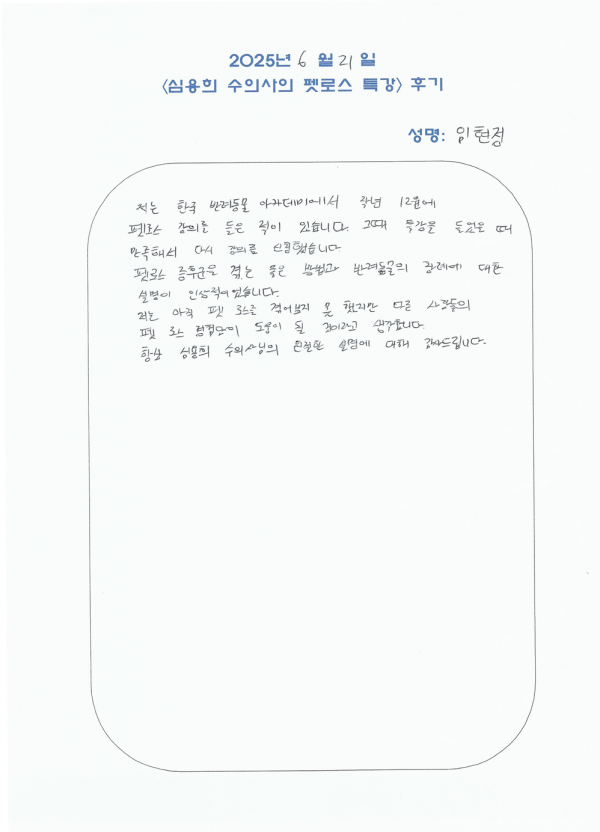 2025년 6 월 21 일
<심용희 수의사의 펫로스 특강> 후기
성명: 임현정
저는 한국 반려동물 아카데미에서 작년 12월에
펫로스 강의를 들은 적이 있습니다. 그때 특강을 들었을 때
만족해서 다시 강의를 신청했습니다
펫로스 증후군을 겪는 방법과 반려동물의 장례에 대한
설명이 인상적이었습니다.
저는 아직 펫 로스를 겪어보지 못 했지만 다른 사람들의
펫 로스 경험담이 도움이 될 것이라고 생각합니다.
항상 심용희 수의사님의 친절한 설명에 대해 감사드립니다.